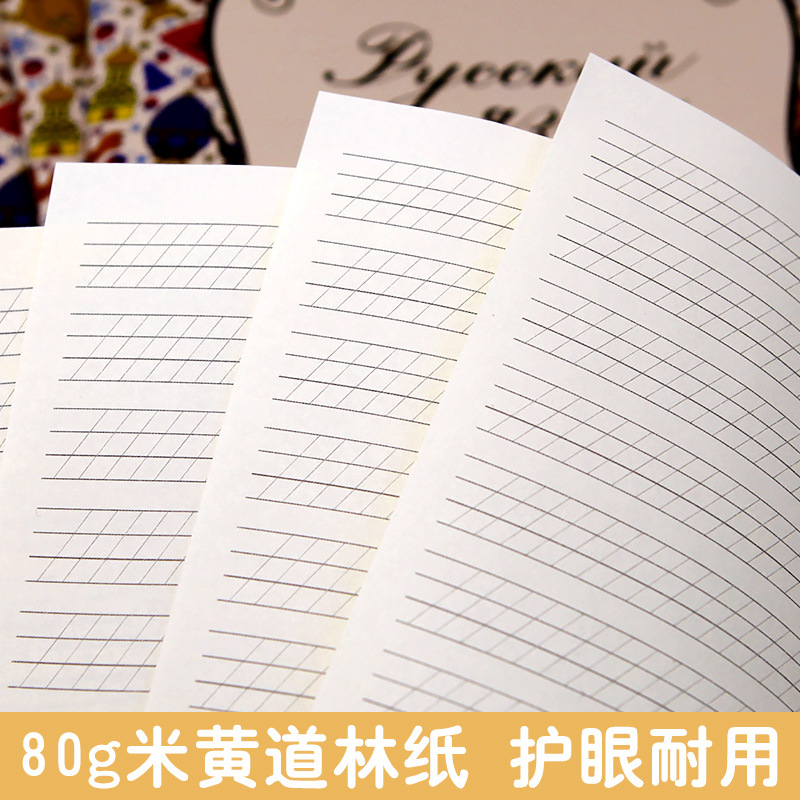 Русский
80g米黄道林纸 护眼耐用